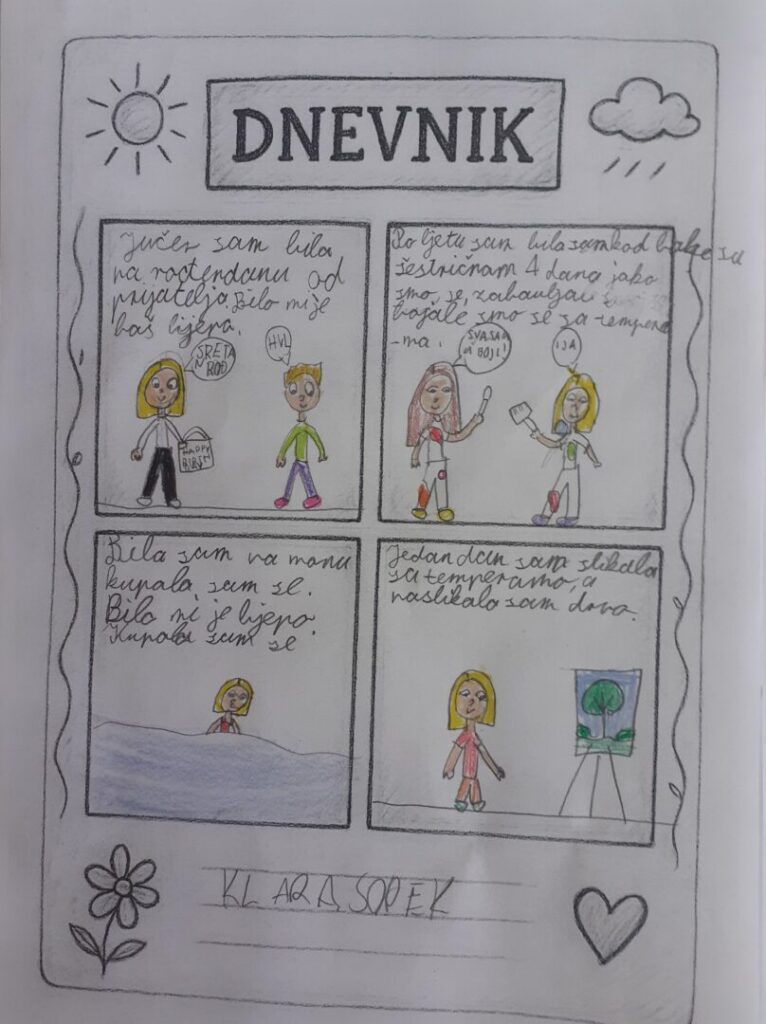 DNEVNIK
Jučer sam bila
na rođendanu od
prijatelja. Bilo mi je
baš lijepo.
SRETA
N
ROĐ
HVL
HAPPY
BIRTH
Po ljetu sam bila sam kod bake sa
sestričnam 4 dana jako
smo se zabavljale
bojale smo se sa tempera
-ma.
SVA SAM
BOJI!
I JA
Bila sam na moru
kupala sam se.
Bilo mi je lijepo.
Kupala sam se
Jedan dan sam slikala
sa temperama, a
naslikala sam drvo.
KLARA SOPEK